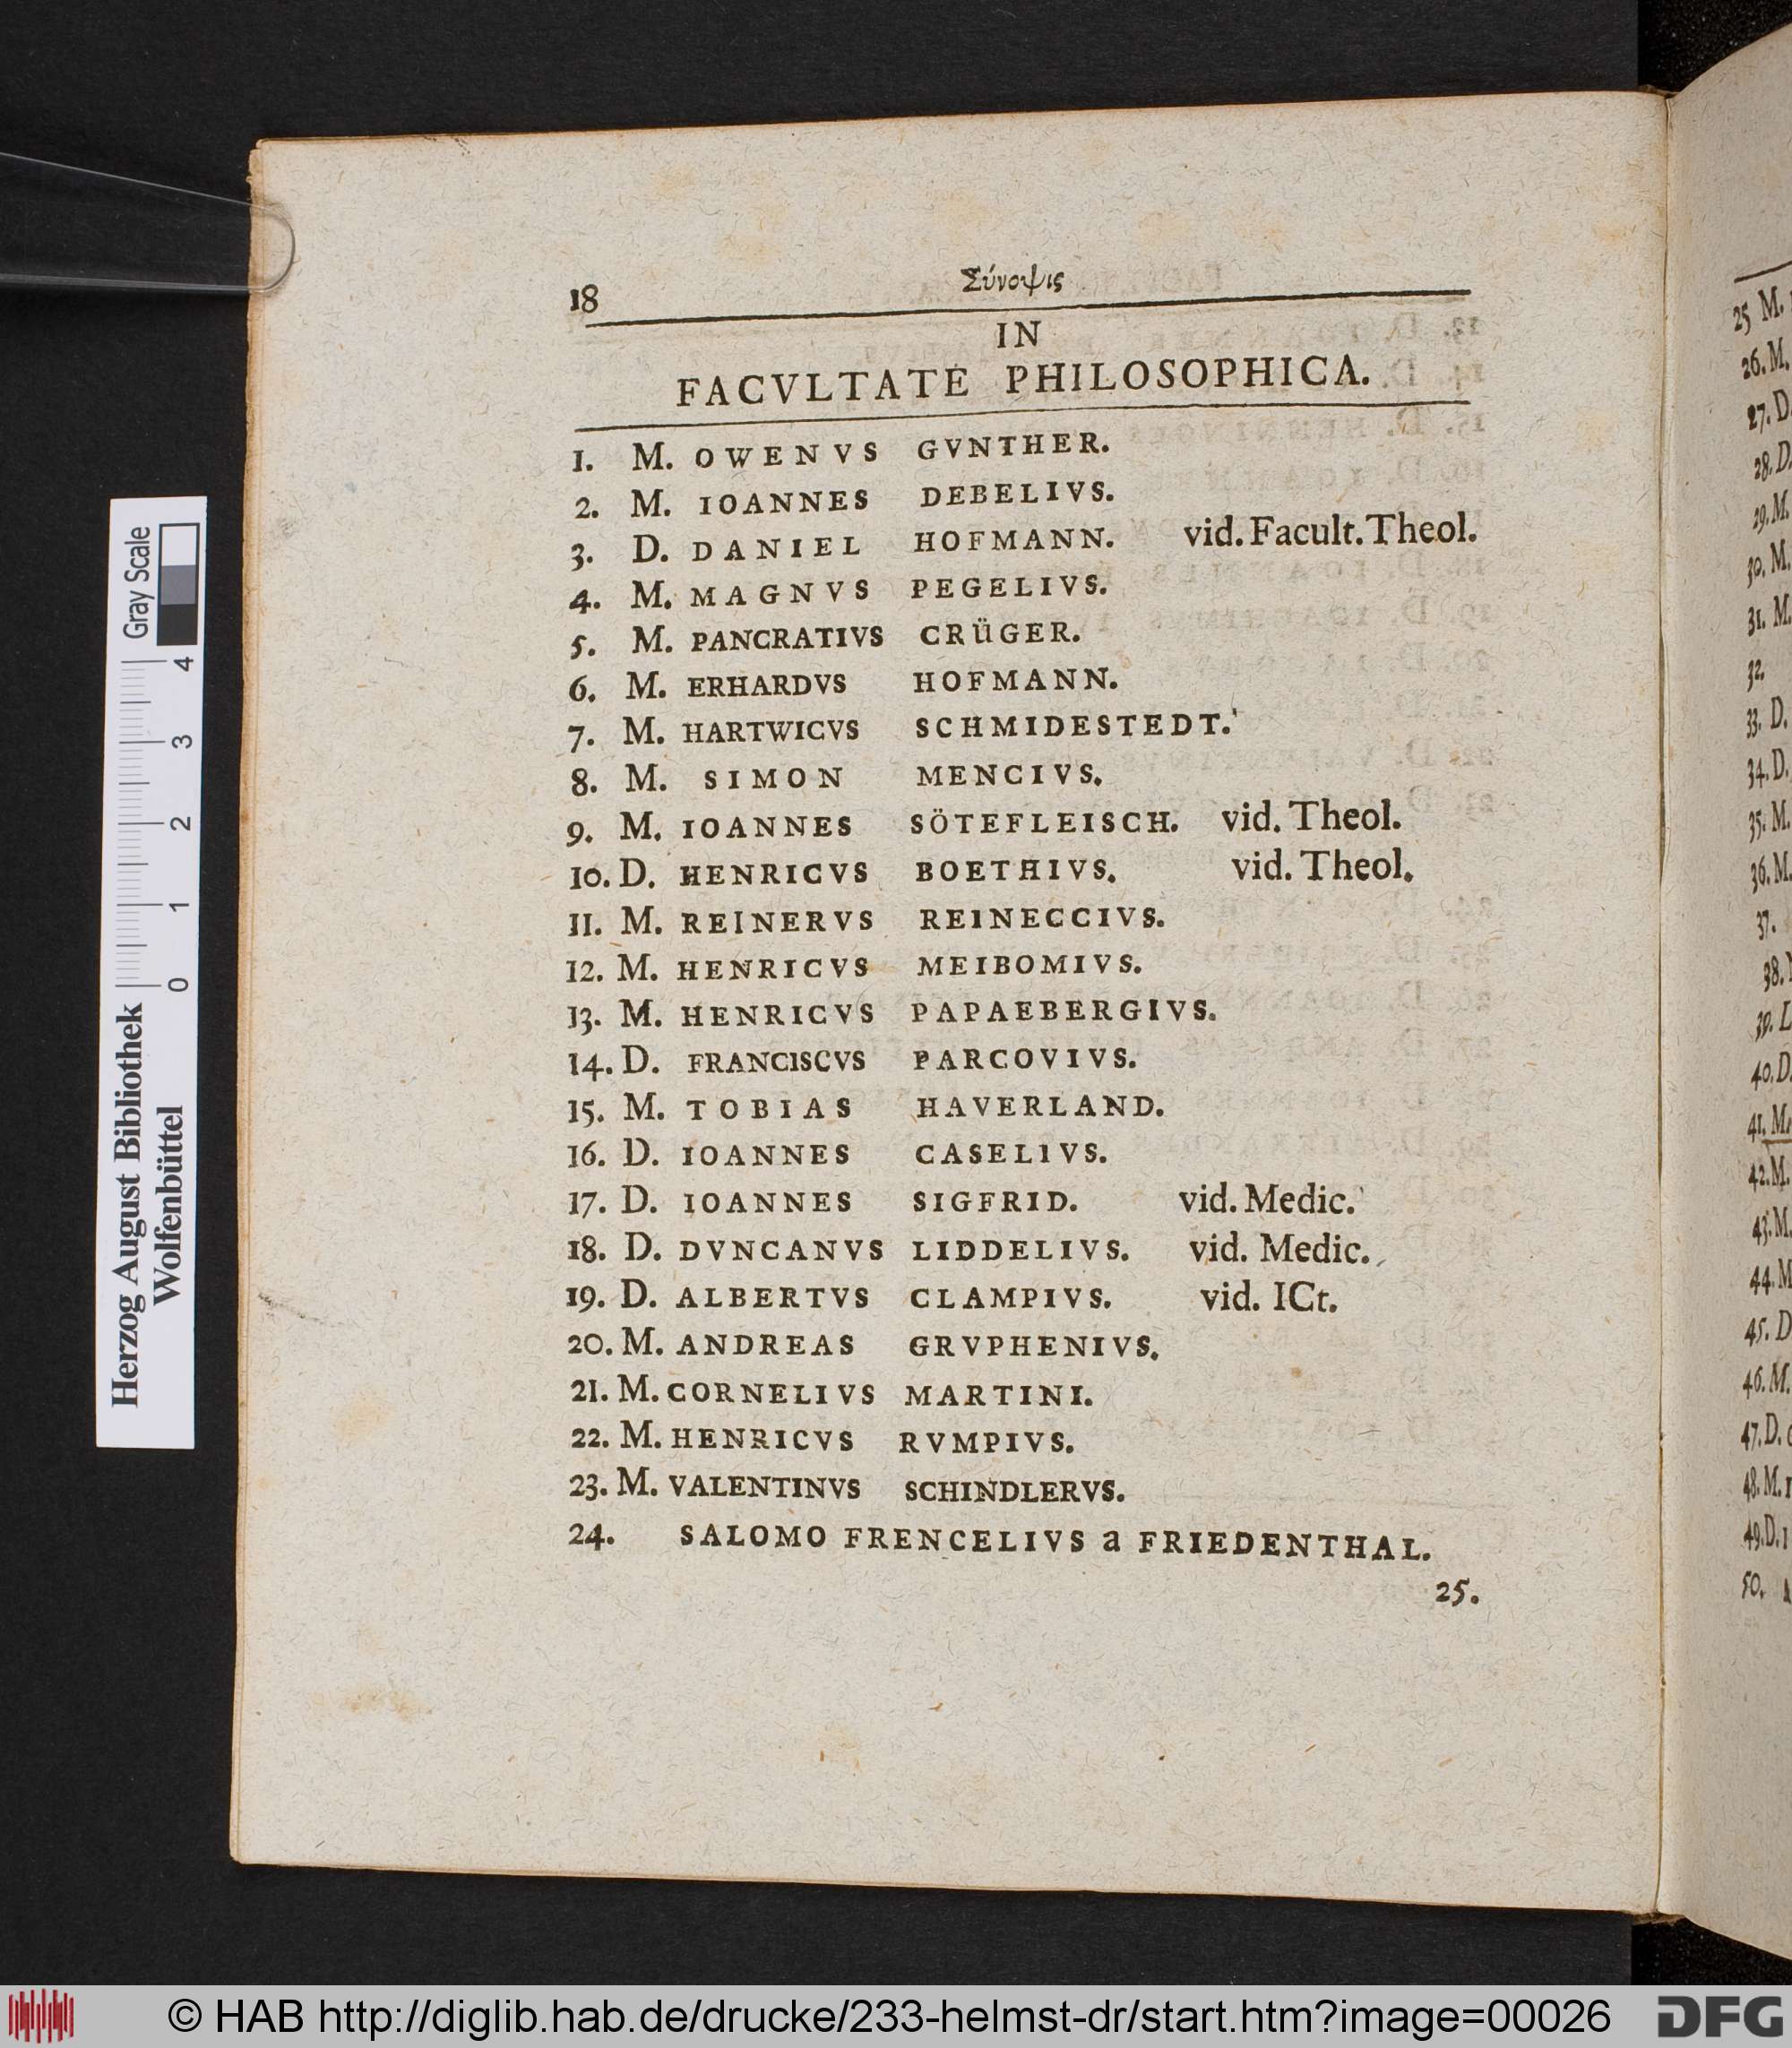 18 Σύνοψις
IN
FACVLTATE PHILOSOPHICA.
1. M. OWENVS GVNTHER.
2. M. IOANNES DEBELIVS.
3. D. DANIEL HOFMANN. vid. Facult. Theol.
4. M. MAGNVS PEGELIVS.
5. M. PANCRATIVS CRÜGER.
6. M. ERHARDVS HOFMANN.
7. M. HARTWICVS SCHMIDESTEDT.
8. M. SIMON MENCIVS.
9. M. IOANNES SÖTEFLEISCH. vid. Theol.
10. D. HENRICVS BOETHIVS. vid. Theol.
11. M. REINERVS REINECCIVS.
12. M. HENRICVS MEIBOMIVS.
13. M. HENRICVS PAPAEBERGIVS.
14. D. FRANCISCVS PARCOVIVS.
15. M. TOBIAS HAVERLAND.
16. D. IOANNES CASELIVS.
17. D. IOANNES SIGFRID. vid. Medic.
18. D. DVNCANVS LIDDELIVS. vid. Medic.
19. D. ALBERTVS CLAMPIVS. vid. ICt.
20. M. ANDREAS GRVPHENIVS.
21. M. CORNELIVS MARTINI.
22. M. HENRICVS RVMPIVS.
23. M. VALENTINVS SCHINDLERVS.
24. SALOMO FRENCELIVS a FRIEDENTHAL.
25.
25 M.
26. M.
27. D
28. D.
29. M.
30. M.
31. M.
32.
33. D.
34. D.
35. M.
36. M.
37.
38.
39. L
40. D.
41. M.
42. M.
43. M.
44. M
45. D
46. M.
47. D.
48. M.
49. D.
50.
Herzog August Bibliothek
Wolfenbüttel
Gray Scale
0 1 2 3 4
© HAB http://diglib.hab.de/drucke/233-helmst-dr/start.htm?image=00026
DFG